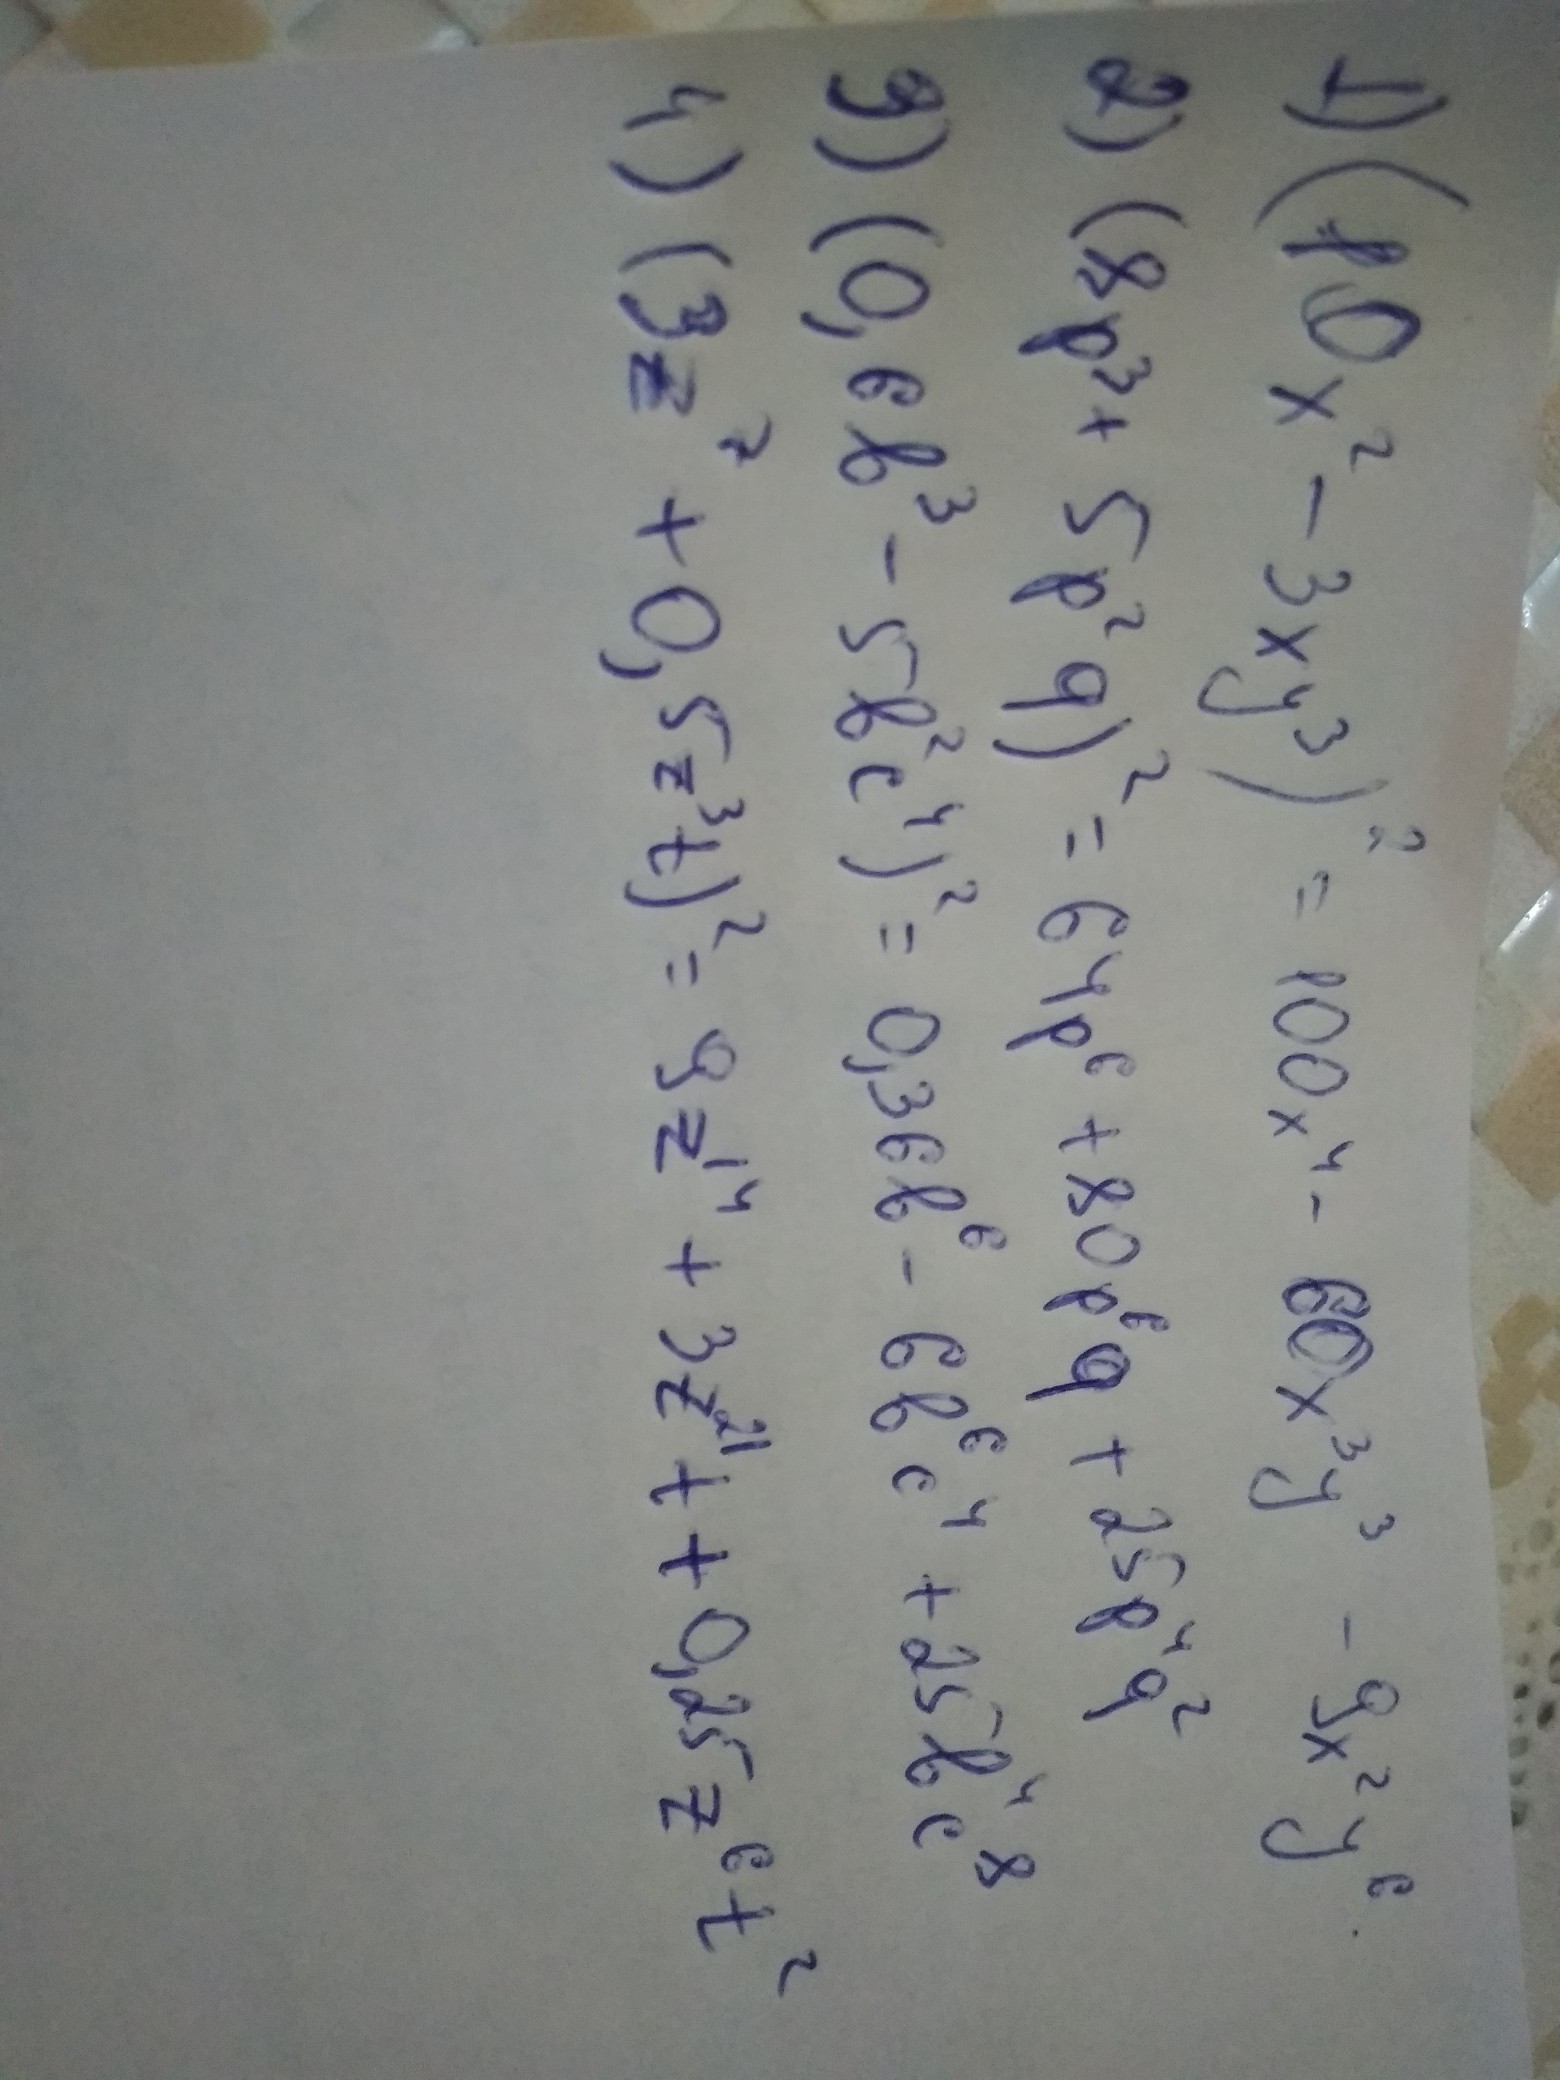 1) (10x² - 3xy³)² = 100x⁴ - 60x³y³ - 9x²y⁶.
2) (8p³ + 5p²q)² = 64p⁶ + 80p⁶q + 25p⁴q²
3) (0,6b³ - 5b²c⁴)² = 0,36b⁶ - 6b⁶c⁴ + 25b⁴c⁸
4) (3z⁷ + 0,5z³t)² = 9z¹⁴ + 3z²¹t + 0,25z⁶t²